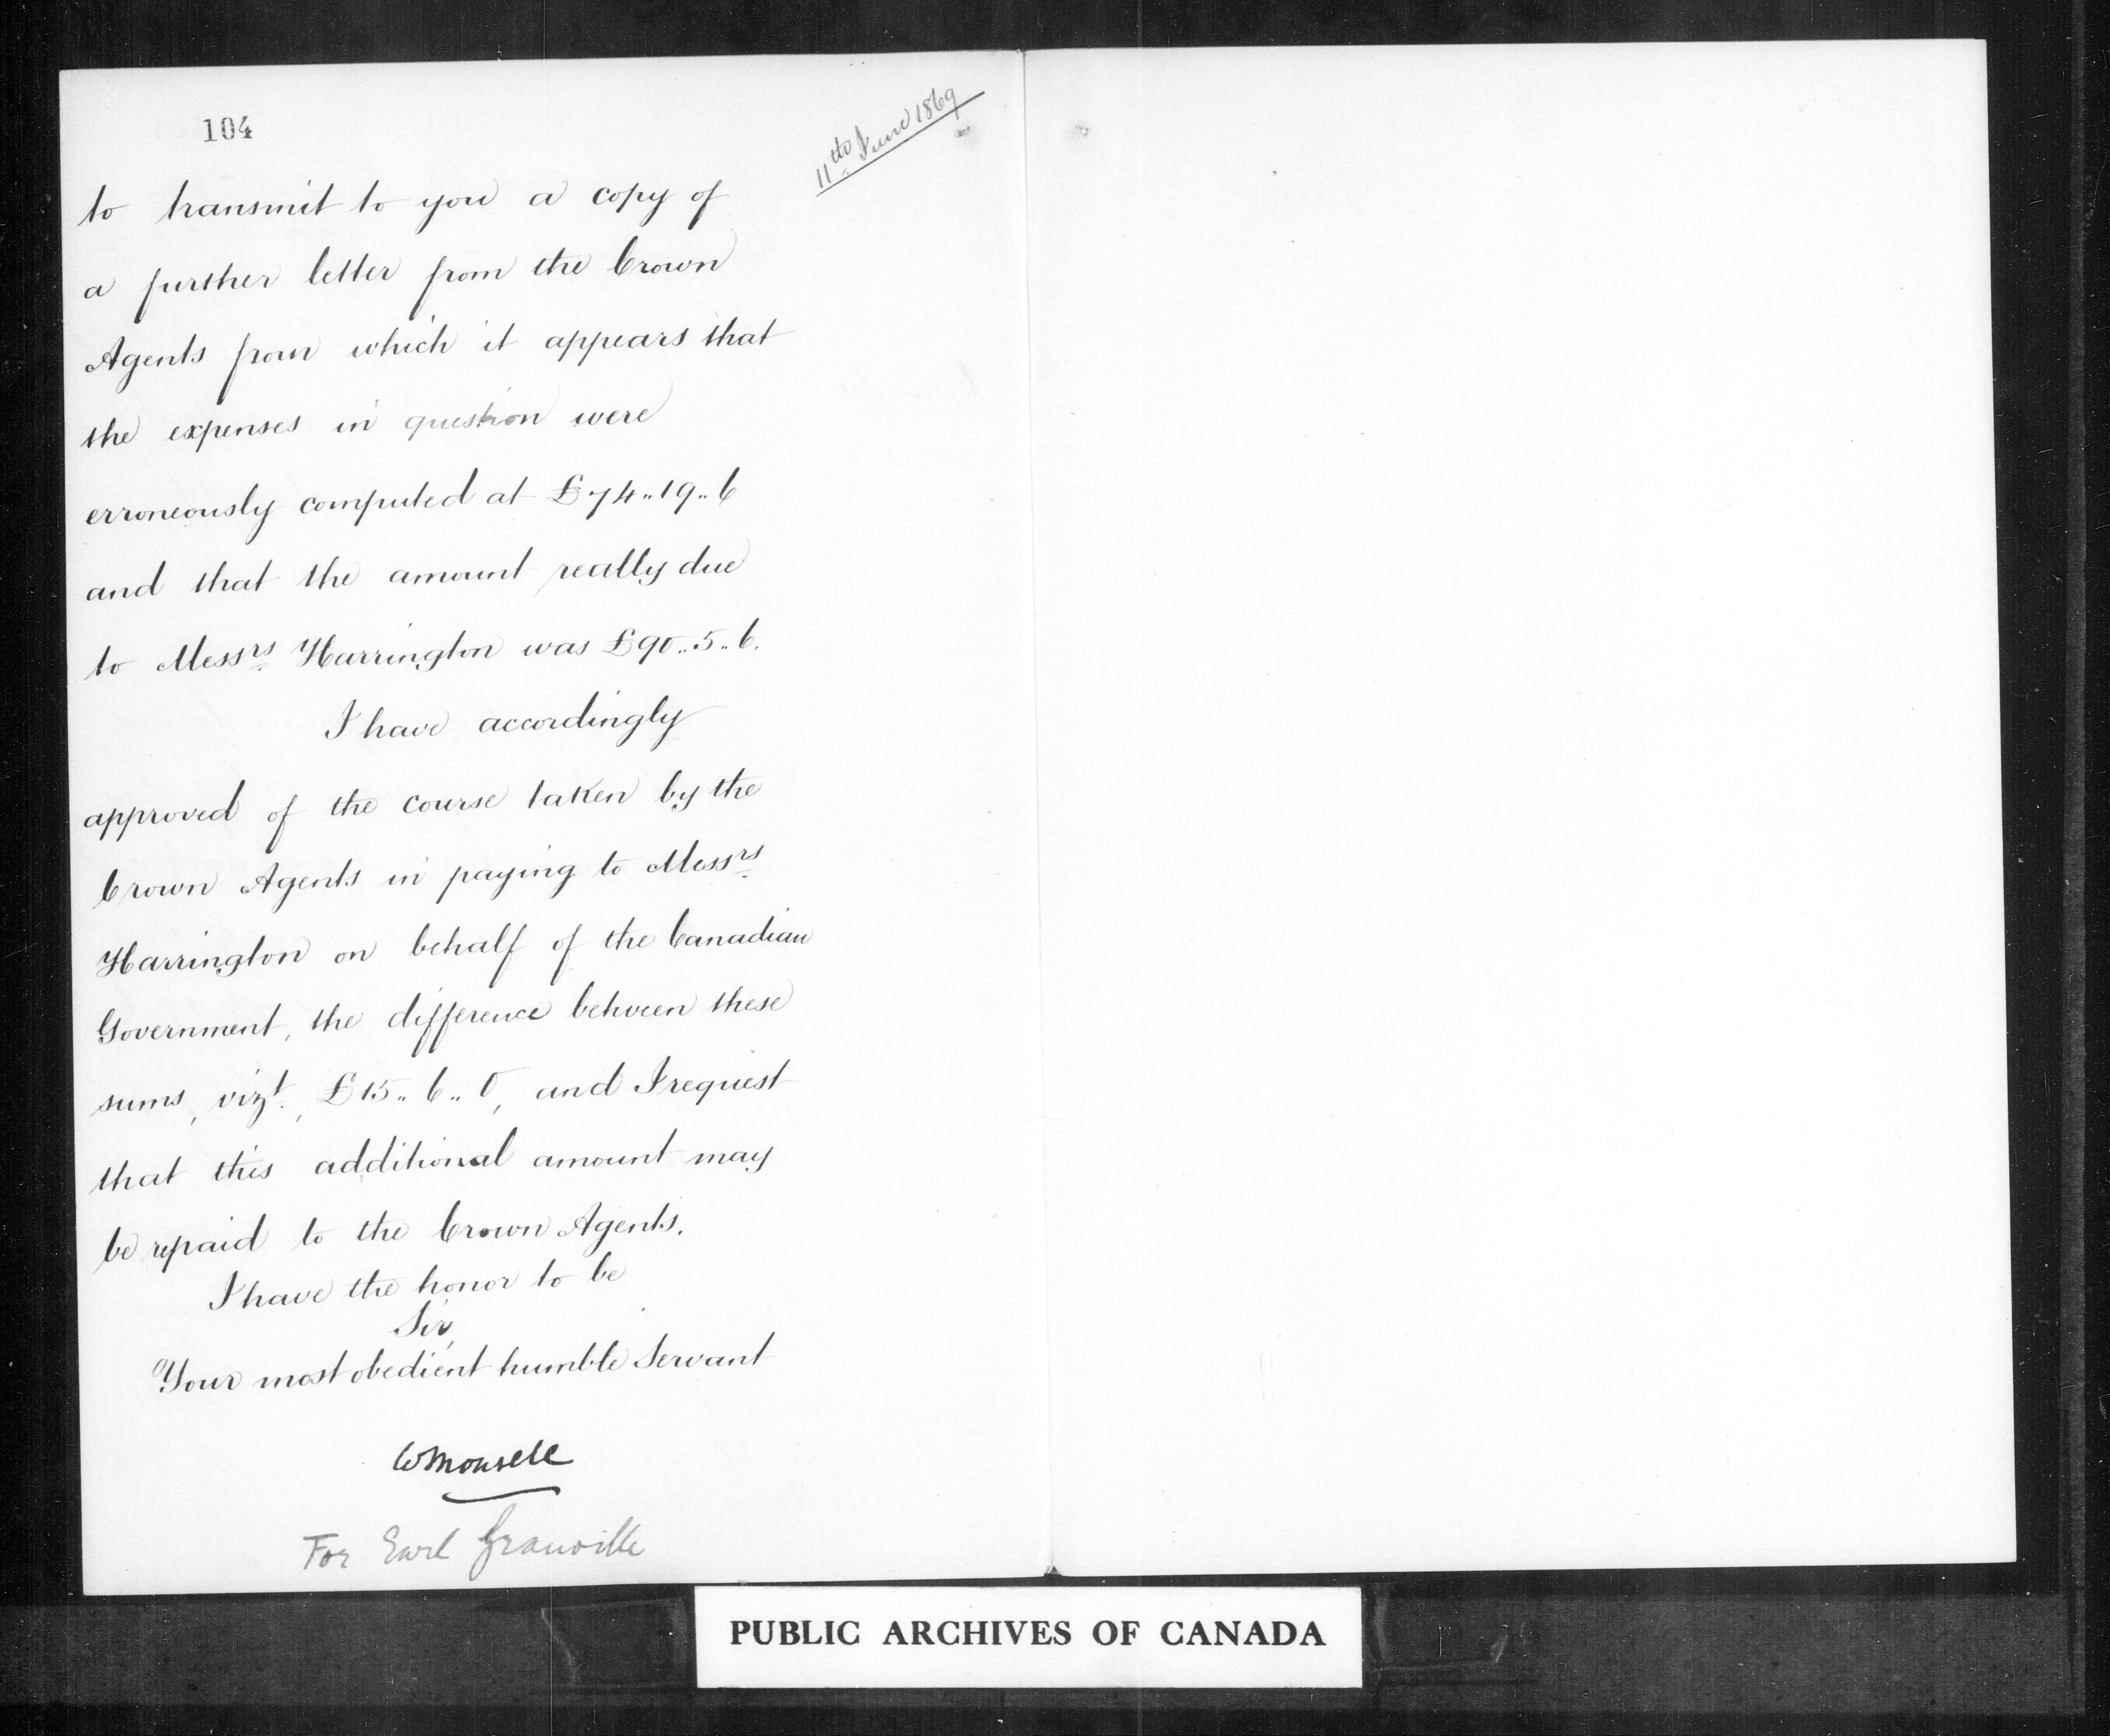 104
11th June 1869
to transmit to you a copy of
a further letter from the Crown
Agents from which it appears that
the expenses in question were
erroneously computed at £74..19..6
and that the amount really due
to Messrs Harrington was £90..5..6.
I have accordingly
approved of the course taken by the
Crown Agents in paying to Messrs
Harrington on behalf of the Canadian
Government, the difference between these
sums, vizt., £15..6..0, and I request
that this additional amount may
be repaid to the Crown Agents.
I have the honor to be
Sir,
Your most obedient humble Servant
W Monsell
For Earl Granville
PUBLIC ARCHIVES OF CANADA